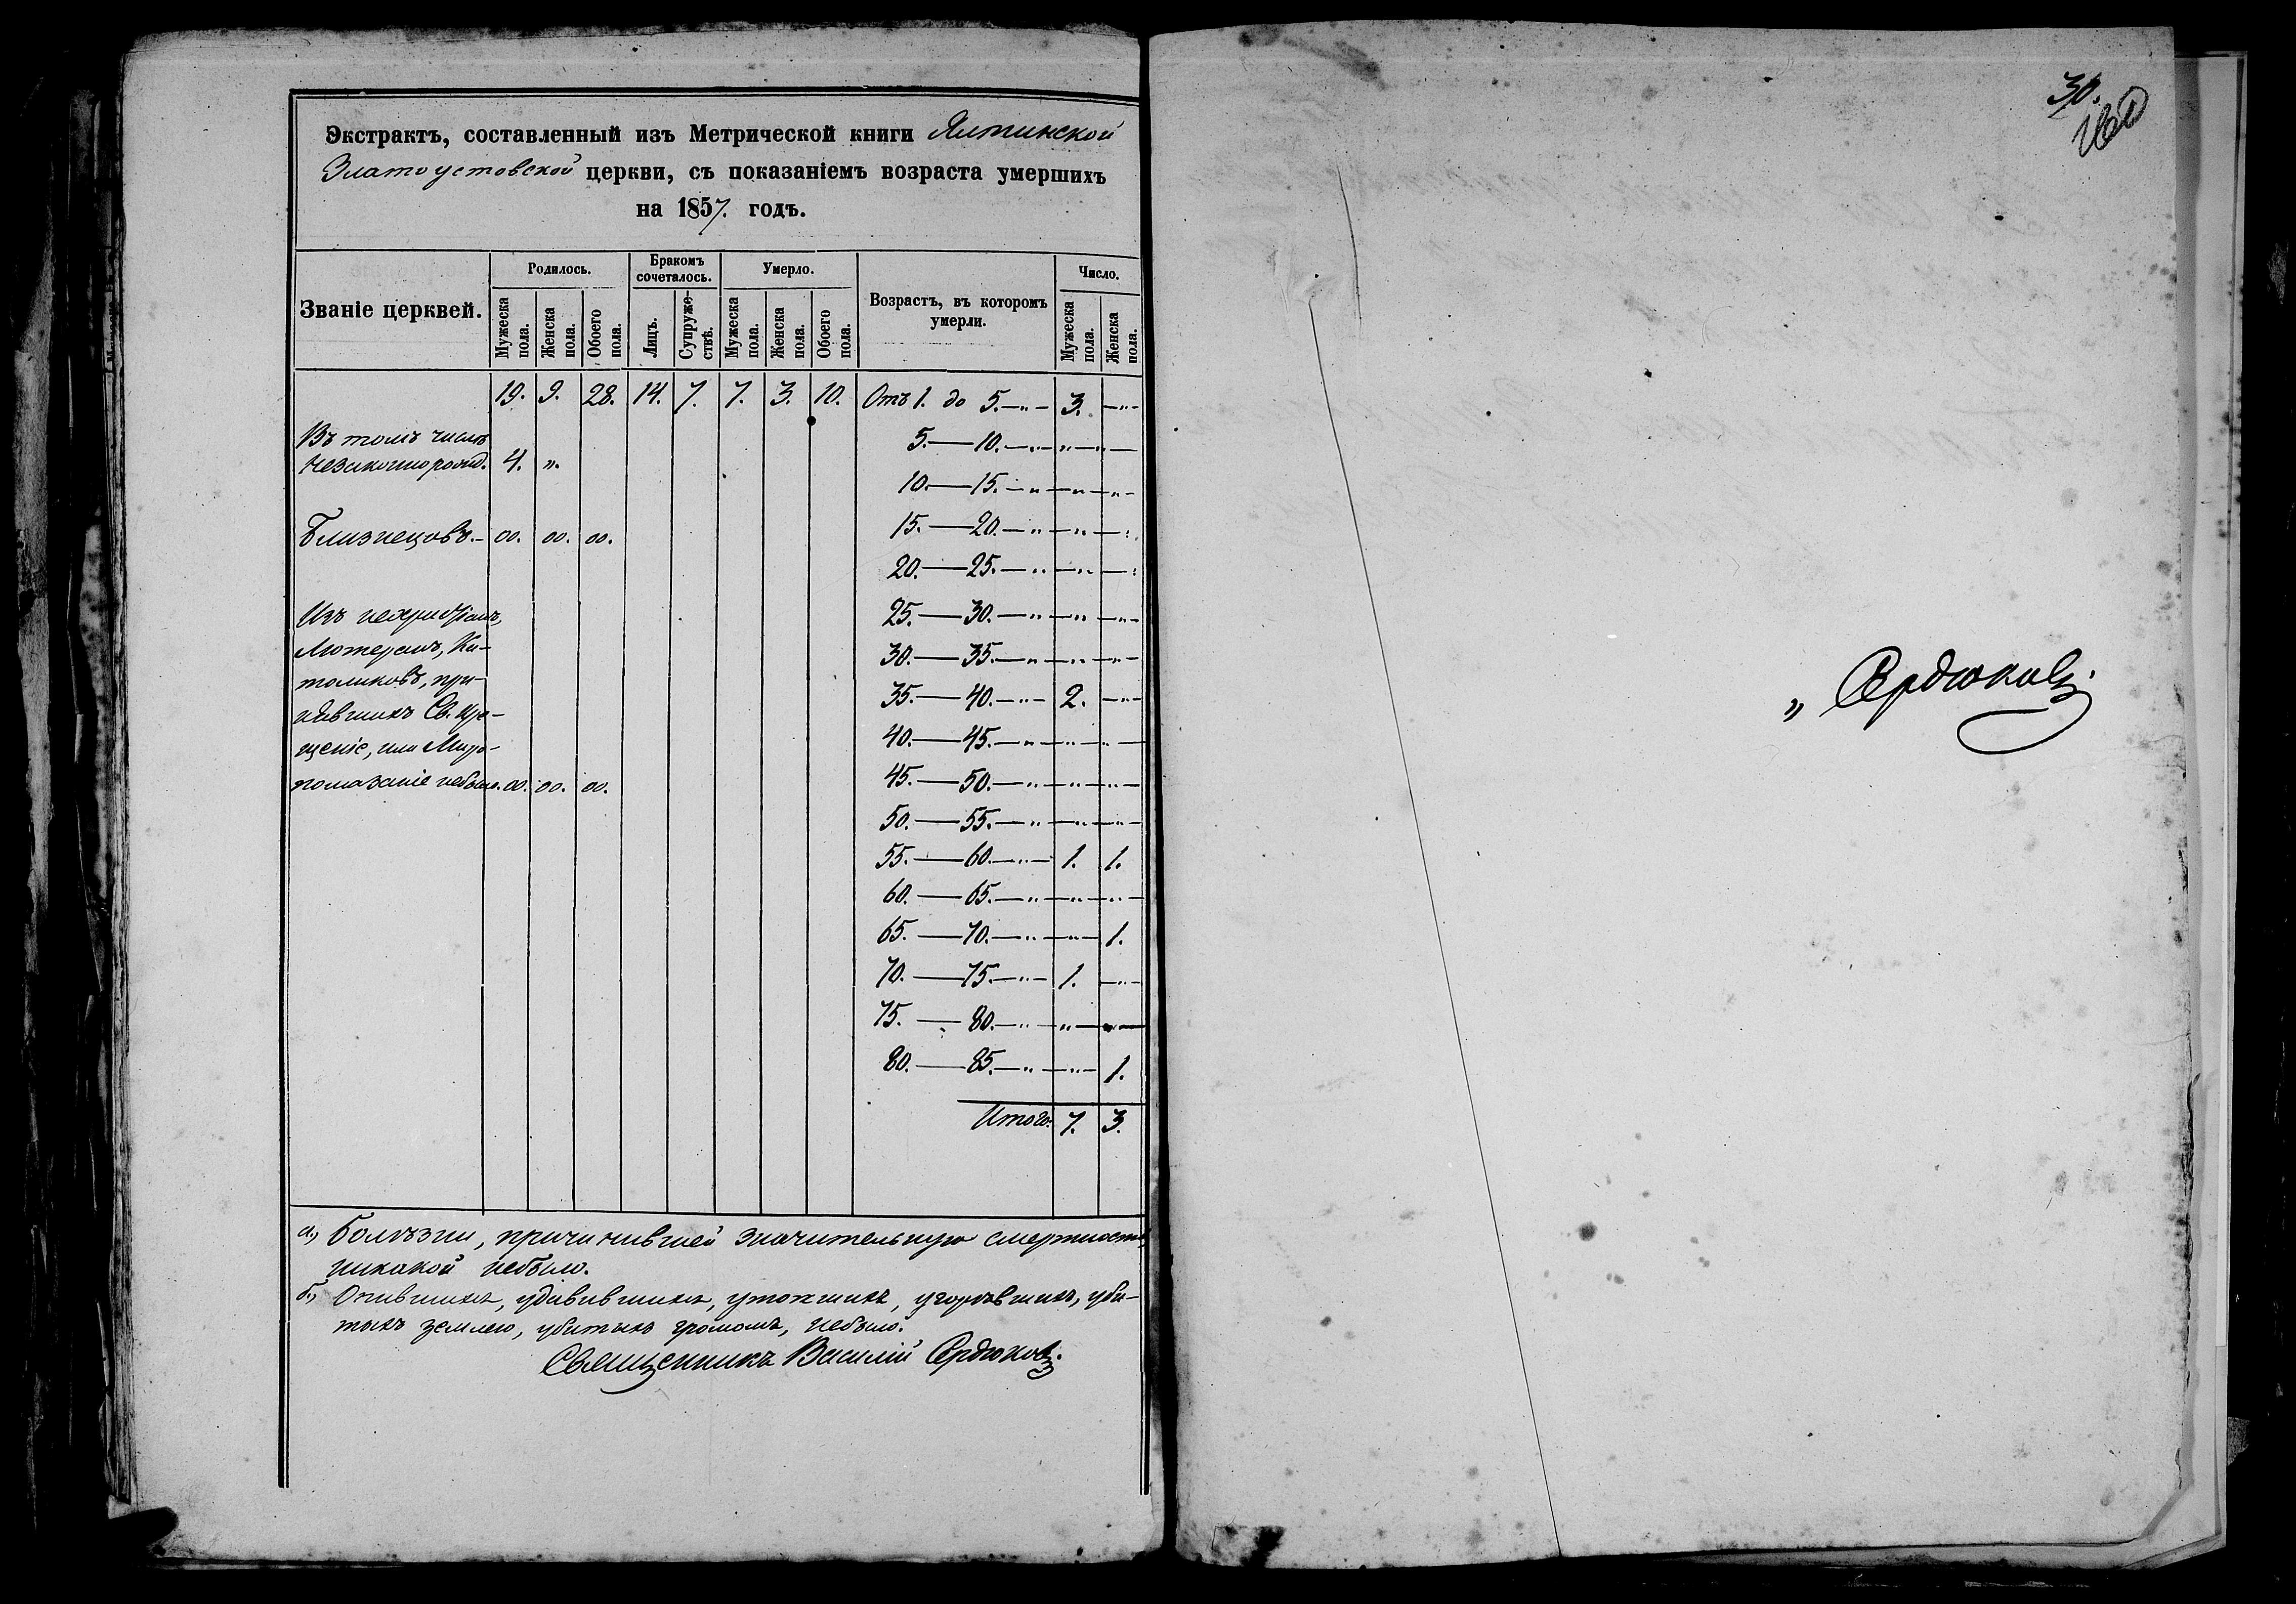 Экстрактъ, составленный изъ Метрической книги Ялтинской
Златоустовской церкви, съ показаніемъ возраста умершихъ
на 1857. годъ.
Званіе церквей.
Родилось.
Бракомъ сочеталось.
Умерло.
Возрастъ, въ которомъ умерли.
Число.
Мужеска пола.
Женска пола.
Обоего пола.
Лицъ.
Супружествъ.
Мужеска пола.
Женска пола.
Обоего пола.
Мужеска пола.
Женска пола.
19. 9. 28. 14. 7. 7. 3. 10. Отъ 1. до 5.—„— 3. —„—
Въ томъ числѣ 5.—10.—„—„—„—
Незаконнорожд. 4. „.
10.—15.—„—„—„—
Близнецовъ.— 00. 00. 00. 15.—20.—„—„—„
20.—25.—„—„—„
Изъ нехристіанъ, 25.—30.—„—„—„—
Лютеранъ, Ка- 30.—35.—„—„—„—
толиковъ, при- 35.—40.—„— 2. —„—
нявшихъ Св. Кре- 40.—45.—„—„—„—
щеніе, или Миро-
помазаніе небыло. 00. 00. 00. 45.—50.—„—„—„—
50.—55.—„—„—„—
55.—60.—„— 1. 1.
60.—65.—„—„—„—
65.—70.—„—„— 1.
70.—75.—„— 1. —„—
75.—80.—„—„—„—
80.—85.—„—„— 1.
Итого: 7. 3.
а.) Болѣзни, причинившей значительную смертность,
никакой небыло.
б.) Опившихъ, удавившихъ, утопшихъ, угорѣвшихъ, уби-
тыхъ землею, убитыхъ громомъ, небыло.
Священникъ Василій Сердюковъ.
30.
„ Сердюковъ.